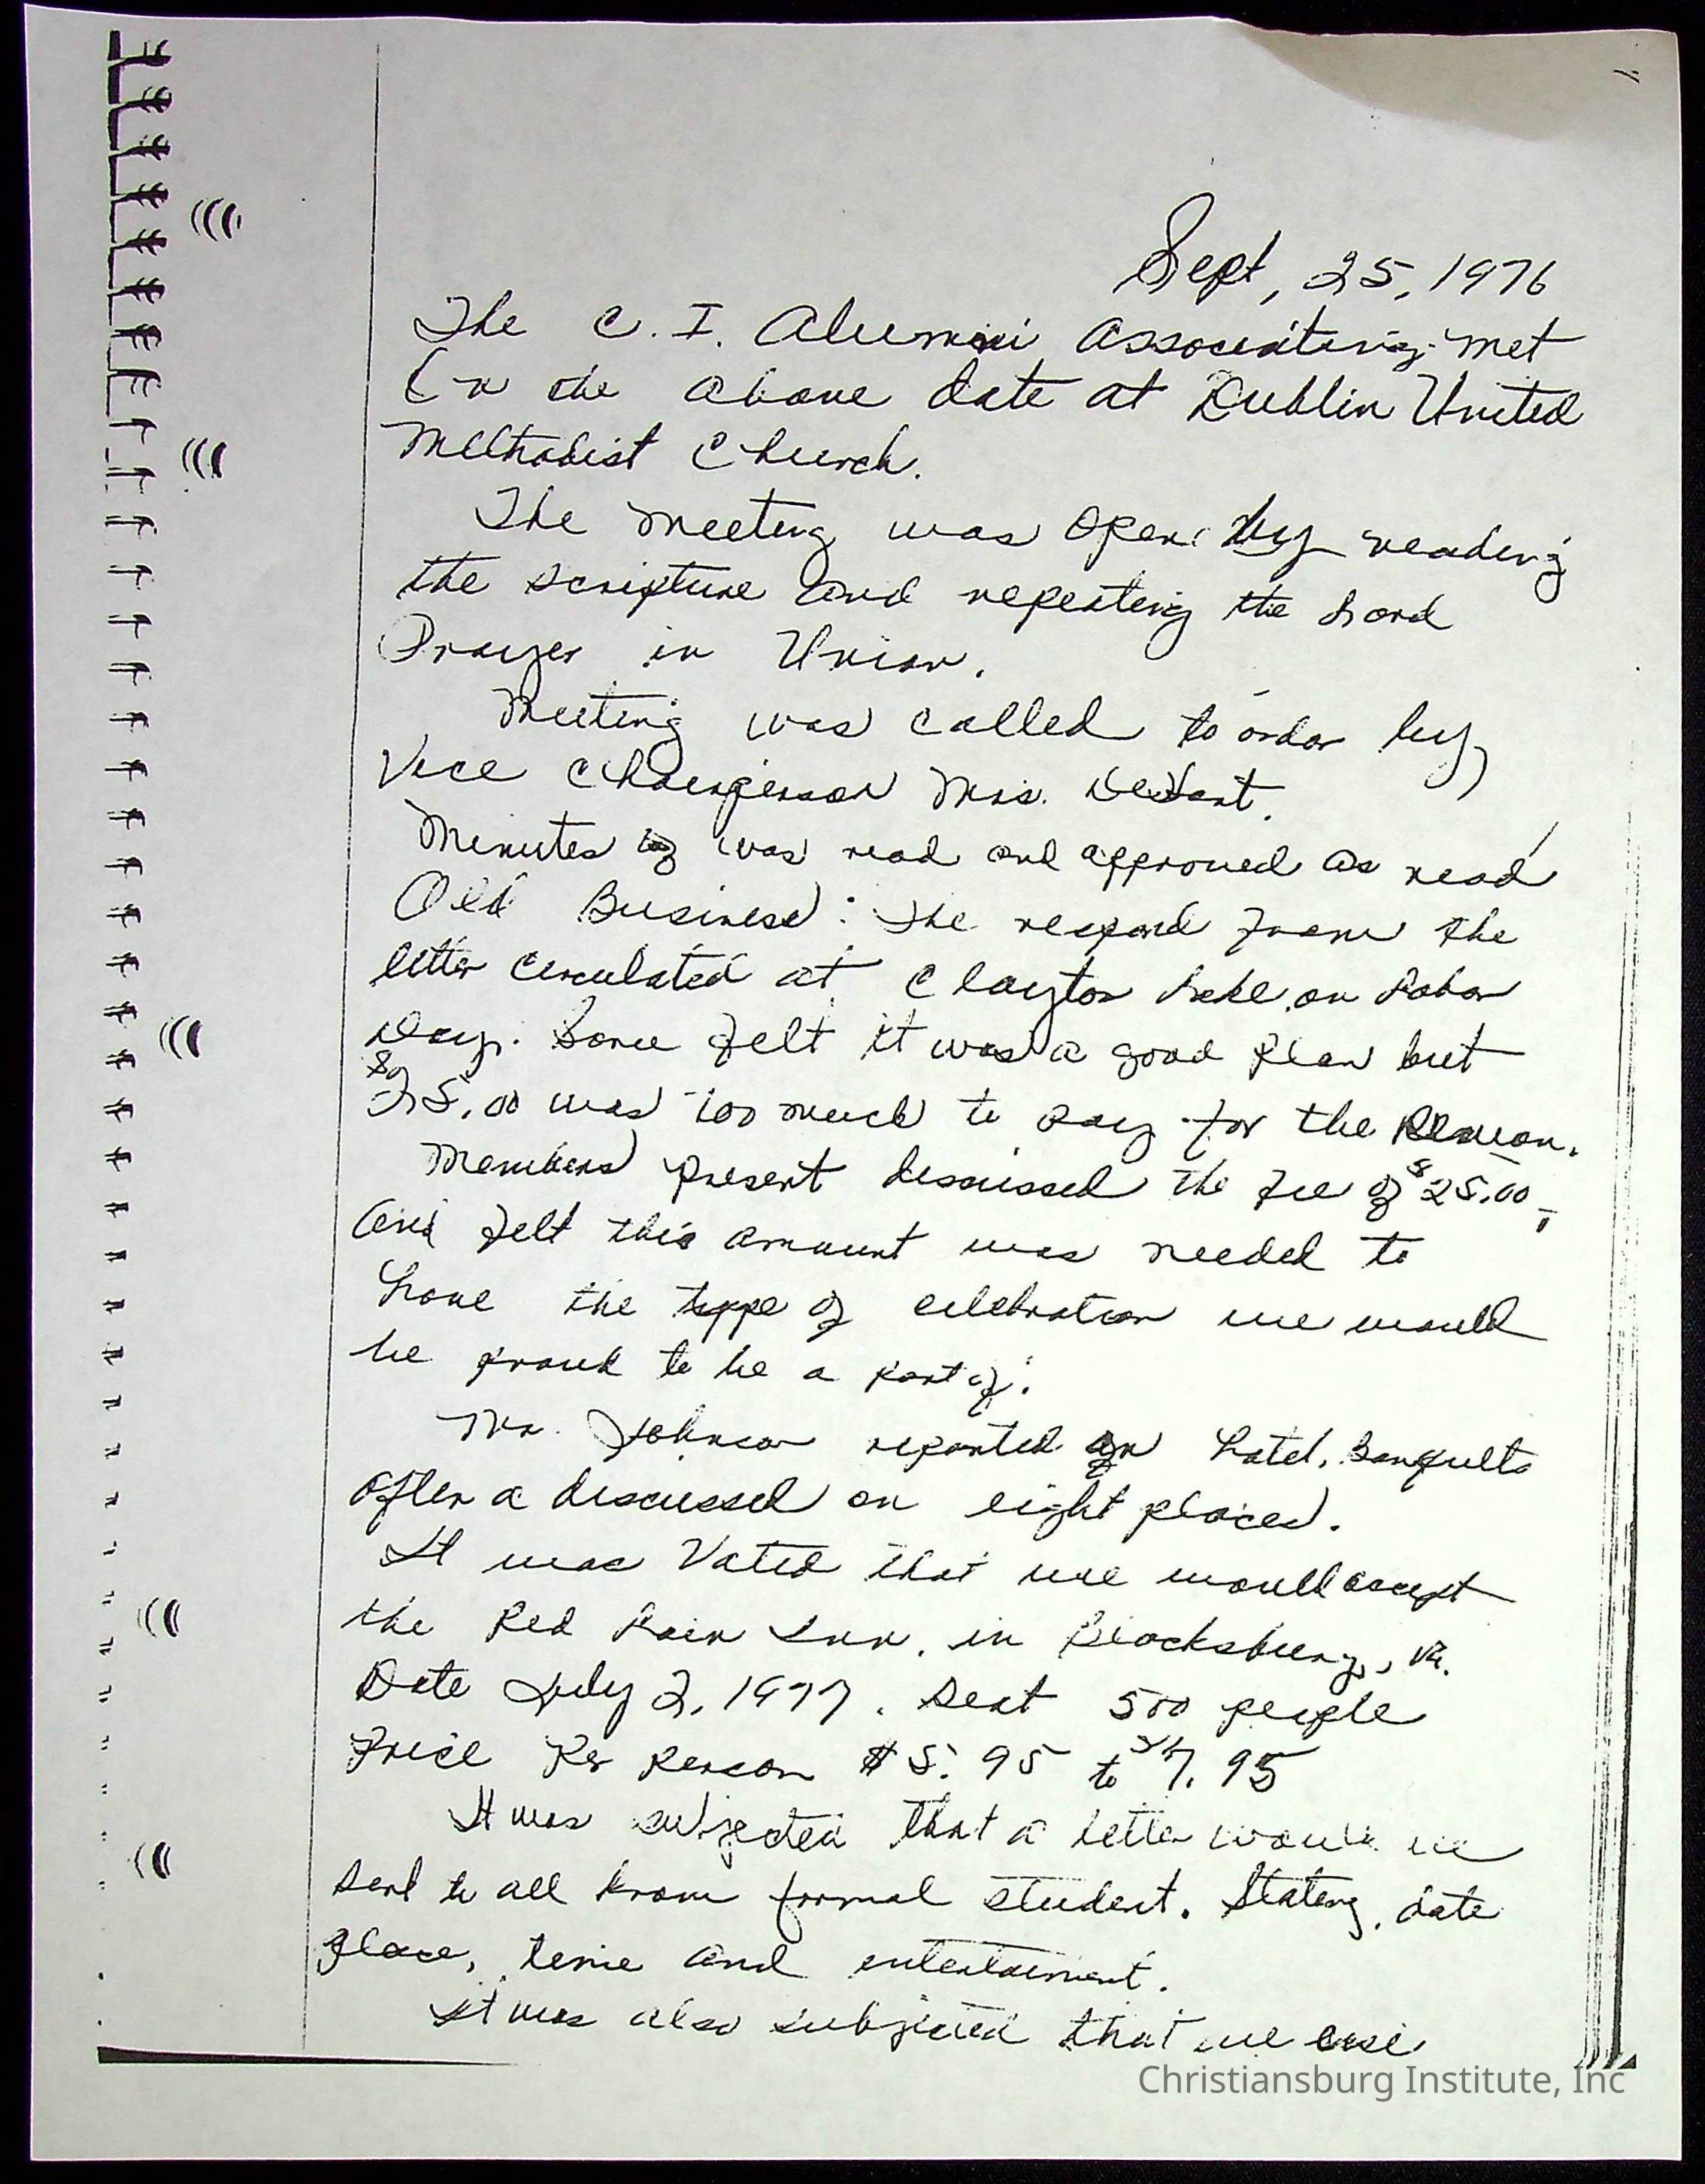 Sept, 25, 1976
The C. I. Alumni Association met
On the above date at Dublin United
Methodist Church.
The meeting was open by reading
the scripture and repeating the Lord
Prayer in Union.
Meeting was called to order by
Vice Chairperson Mrs. DeHart.
Minutes was read and approved as read
Old Business: The respond from the
letter circulated at Claytor Lake on Labor
Day. Some felt it was a good plan but
$25.00 was too much to pay for the Reunion.
Members present discussed the fee of $25.00,
and felt this amount was needed to
have the type of celebration we would
be proud to be a part of.
Mr. Johnson reported on hotel, banquets
After a discussed on eight places.
It was Voted that we would accept
the Red Lion Inn, in Blacksburg, Va.
Date July 2, 1977. Seat 500 people
Price Per Person $5.95 to $7.95
It was subjected that a letter would be
sent to all known formal student. Stating, date
place, time and entertainment.
It was also subjected that we
Christiansburg Institute, Inc